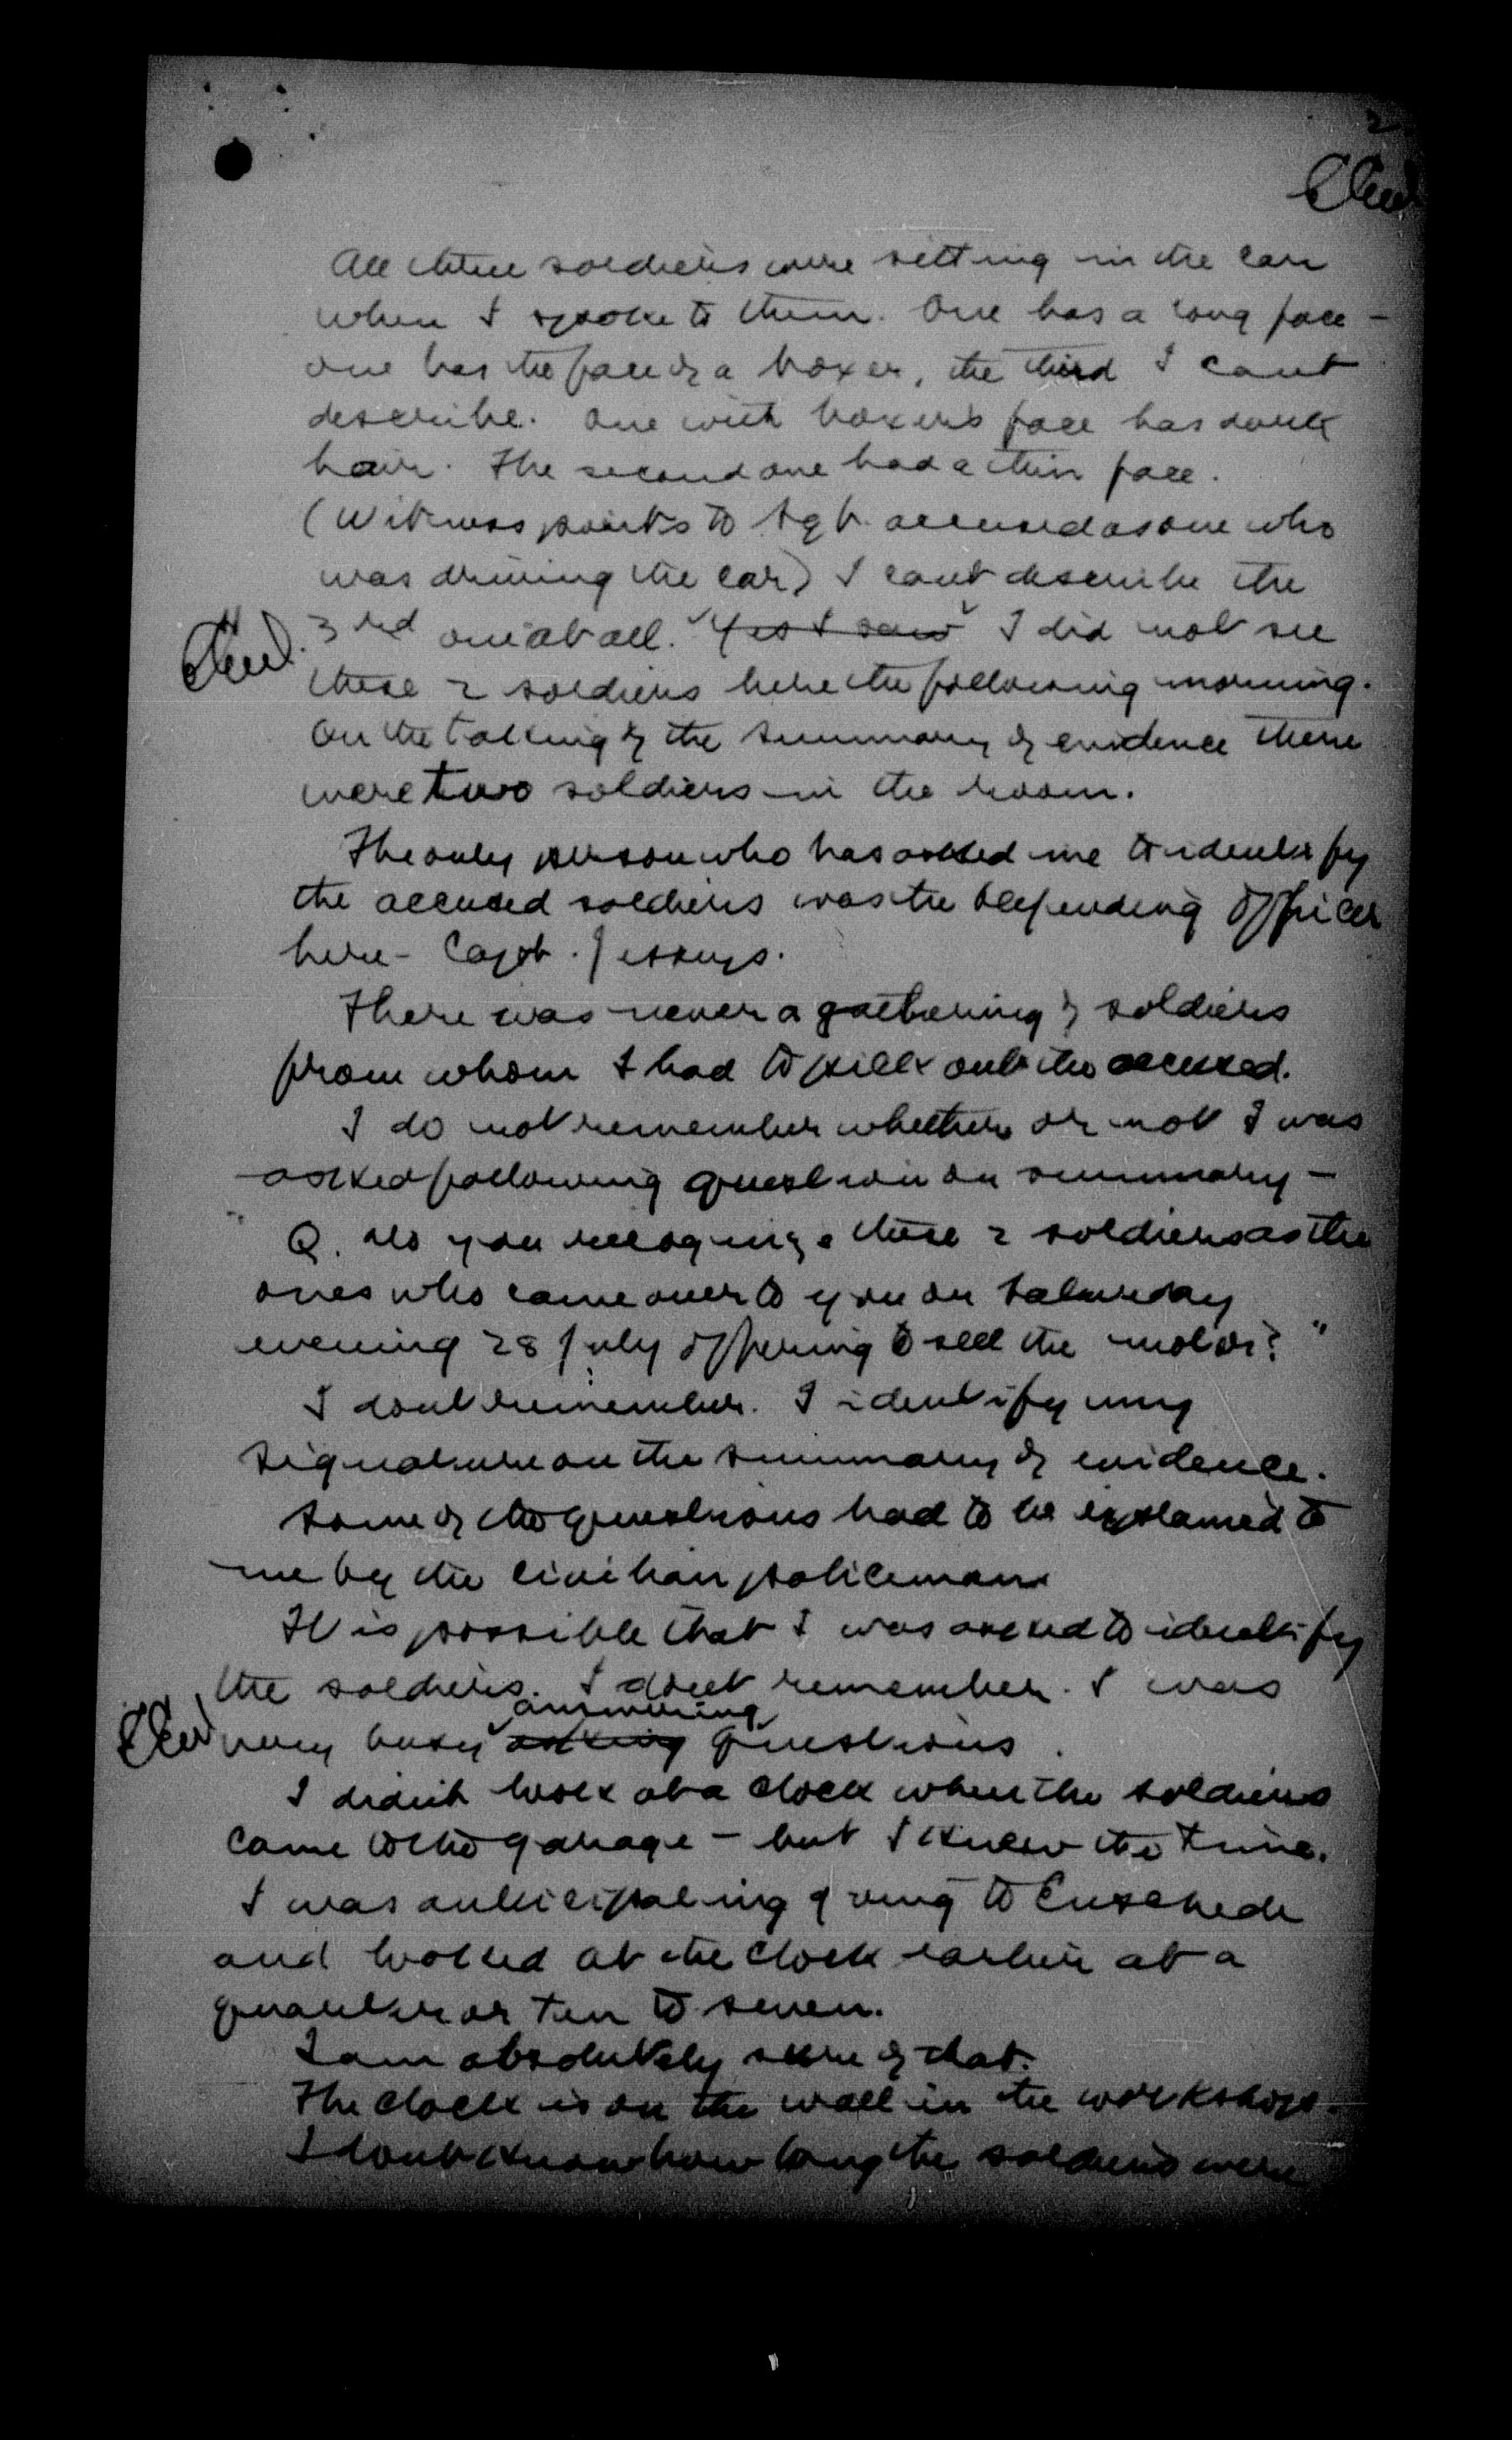 2
All three soldiers were sitting in the car
when I spoke to them. One has a long face -
one has the face of a boxer, the third I cant
describe. One with boxer's face has dark
hair. The second one had a thin face.
(Witness points to Sgt. accused as one who
was driving the car) I cant describe the
3rd one at all. Yes I saw I did not see
these 2 soldiers here the following morning.
On the taking of the summary of evidence there
were two soldiers in the room.
The only person who has asked me to identify
the accused soldiers was the defending officer
here - Capt.
There was never a gathering of soldiers
from whom I had to pick out the accused.
I do not remember whether or not I was
asked following question on summary -
"Q. Do you recognize these 2 soldiers as the
ones who came over to you on Saturday
evening 28 July offering to sell the motor?"
I dont remember. I identify my
signature on the summary of evidence.
Some of the questions had to be explained to
me by the civilian policeman
It is possible that I was asked to identify
the soldiers. I dont remember. I was
answering
very busy asking questions.
I didnt look at a clock when the soldiers
came to the garage - but I knew the time.
I was anticipating going to Enschede
and looked at the clock earlier at a
quarter or ten to seven.
I am absolutely sure of that.
The clock is on the wall in the workshop.
I dont know how long the soldiers were